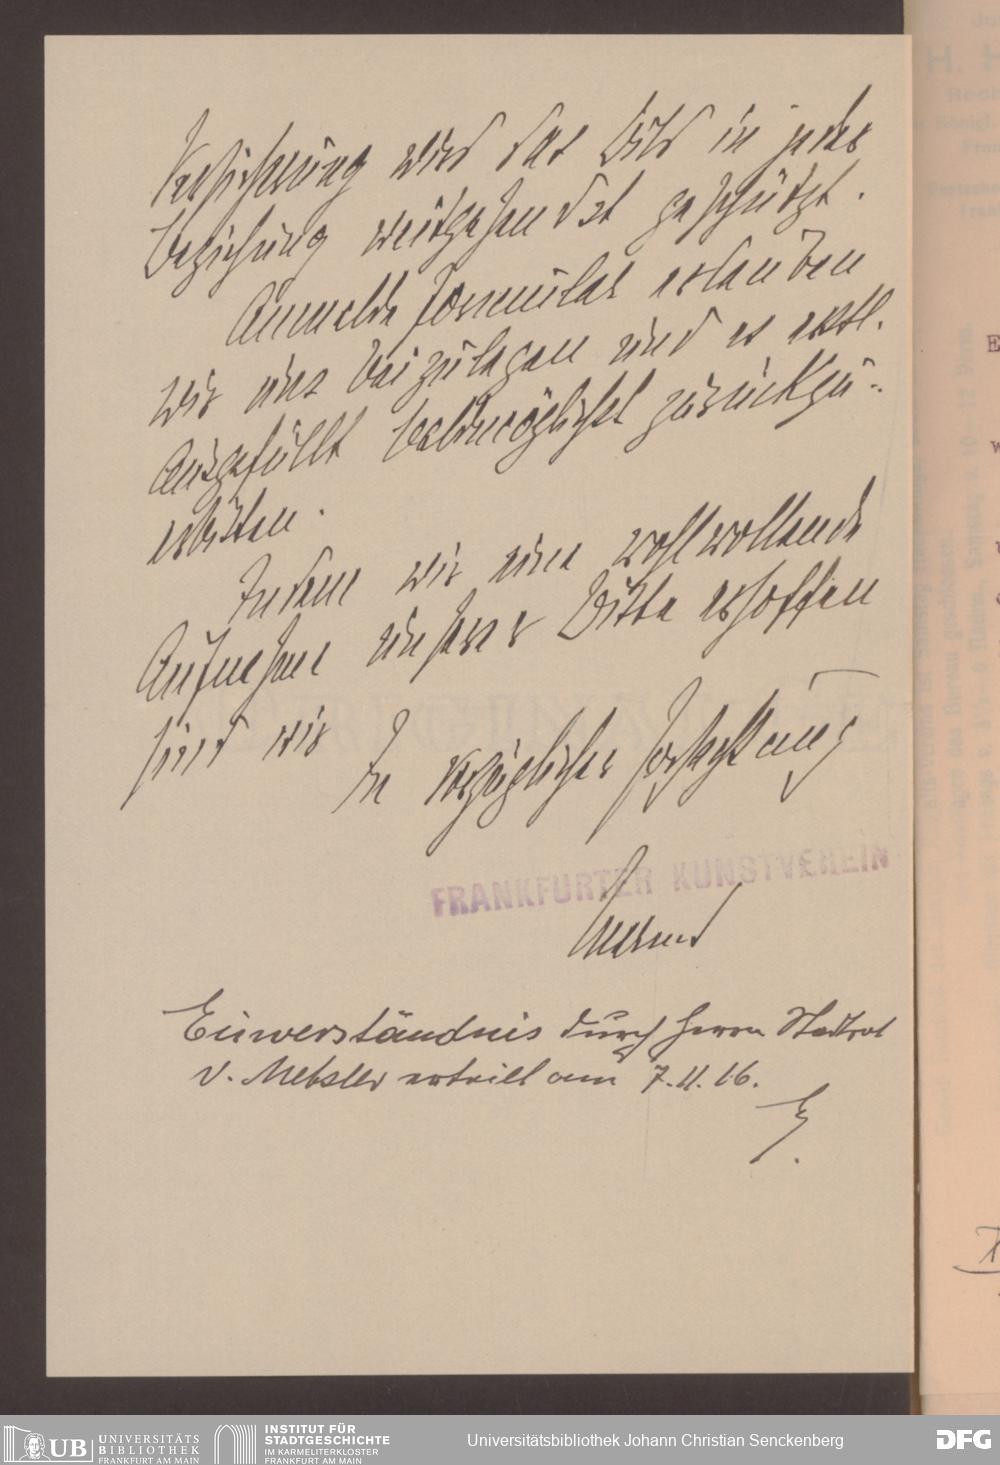 Versicherung wird das Bild in jeder
Beziehung weitgehendst geschützt.
Anmelde Formular erlauben
wir uns beizulegen und es evtl.
ausgefüllt baldmöglichst zurückzu-
erbitten.
Indem wir eine wohlwollende
Aufnahme unserer Bitte erhoffen
sind wir
In vorzüglicher Hochachtung
FRANKFURTER KUNSTVEREIN
Einverständnis durch Herrn Stadtrat
v. Metzler erteilt am 7.11.16.
UB UNIVERSITÄTS
BIBLIOTHEK
FRANKFURT AM MAIN
INSTITUT FÜR
STADTGESCHICHTE
IM KARMELITERKLOSTER
FRANKFURT AM MAIN
Universitätsbibliothek Johann Christian Senckenberg
DFG